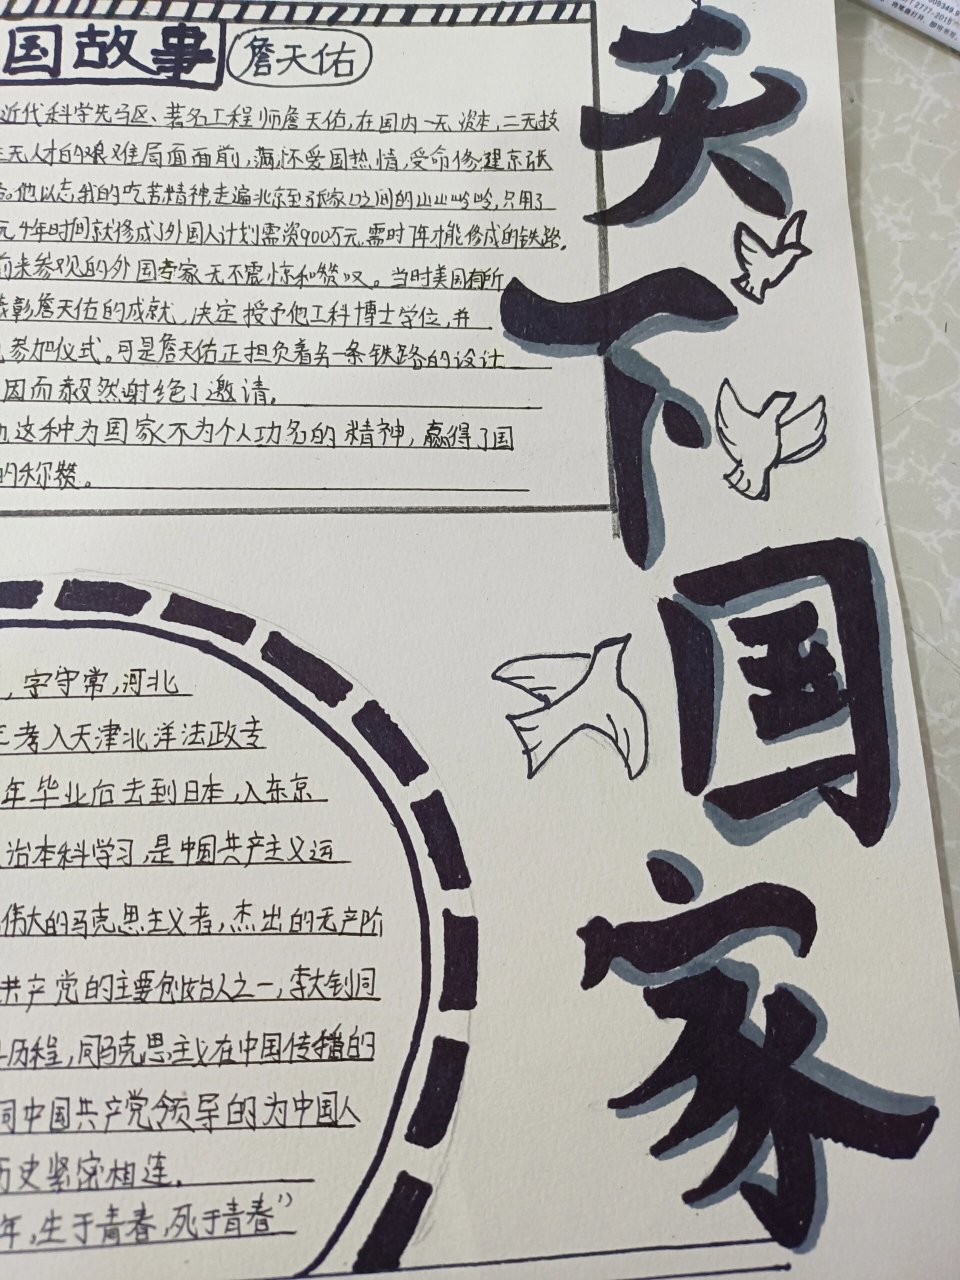 国故事 詹天佑
近代科学先马区、著名工程师詹天佑,在国内一无资本,二无技
三无人才的艰难局面面前,满怀爱国热情,受命修建京张
他以忘我的吃苦精神,走遍北京至张家口之间的山山岭岭,只用了
元,4年时间就修成了外国人计划需资900万元,需时7年才能修成的铁路。
前来参观的外国专家无不震惊和赞叹。当时美国有所
表彰詹天佑的成就,决定授予他工科博士学位,并
参加仪式。可是詹天佑正担负着另一条铁路的设计
因而毅然谢绝了邀请。
这种为国家不为个人功名的精神,赢得了国
的称赞。
,字守常,河北
考入天津北洋法政专
年毕业后去到日本,入东京
治本科学习,是中国共产主义运
伟大的马克思主义者,杰出的无产阶
共产党的主要创始人之一,李大钊同
历程,同马克思主义在中国传播的
同中国共产党领导的为中国人
历史紧密相连。
年,生于青春,死于青春”
天下国家